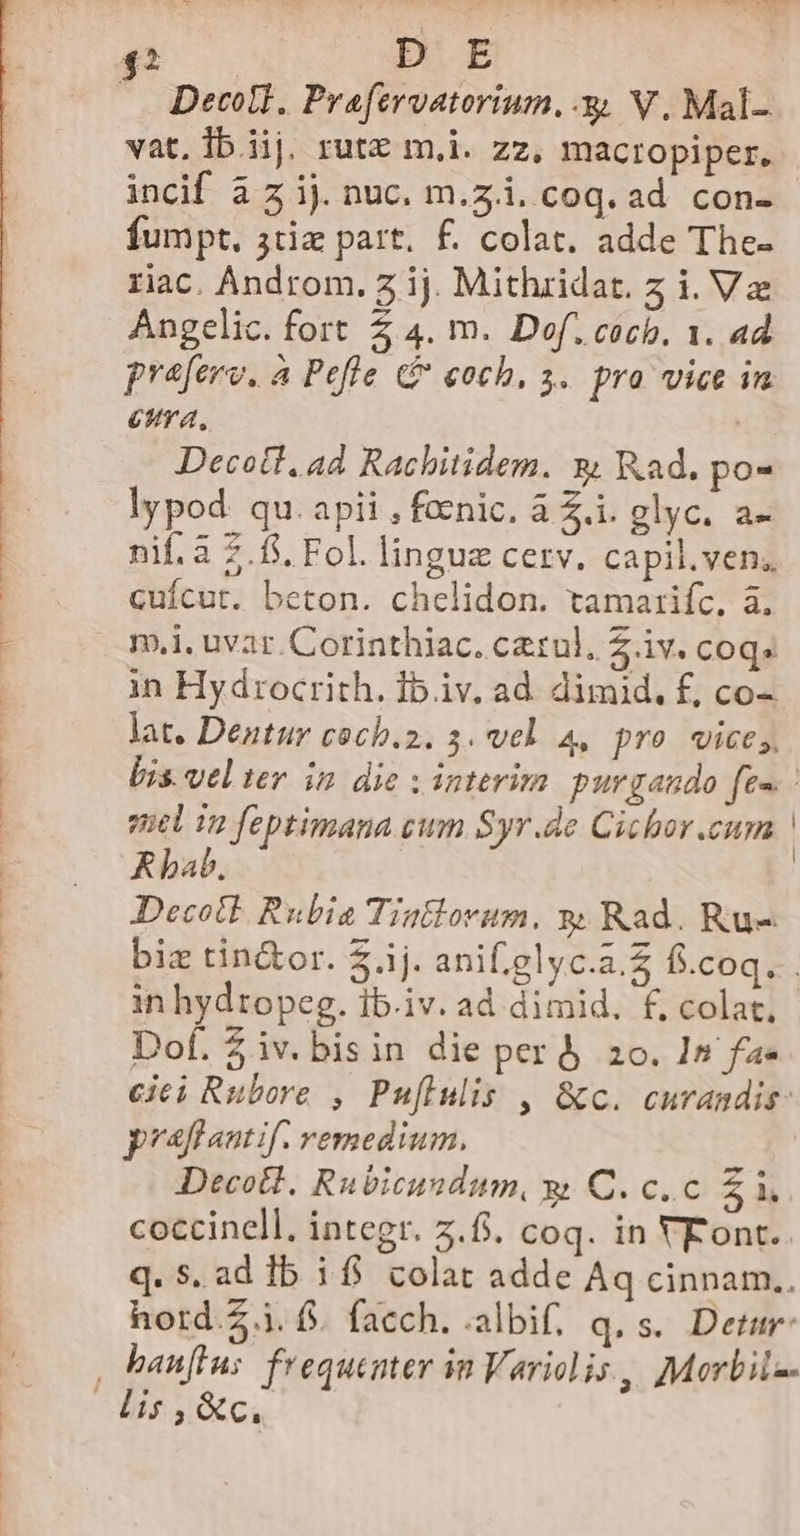 52 D E
Decoct. Præservatorium. ℞. V. Mal-
vat. ℔ iij. rutæ m.i. zz. macropiper.
incis ā ʒ ij. nuc. m.ʒ.i. coq. ad con-
ſumpt. 3tiæ part. f. colat. adde The-
riac. Androm. ʒ ij. Mithridat. ʒ i. Væ
Angelic. fort ℥ 4. m. Doſ. coch. 1. ad
præſerv. à Peſte & coch. 3. pro vice in
cura.
Decoct. ad Rachitidem. ℞ Rad. po-
lypod qu. apii, fœnic. ā ℥.i. glyc. a-
niſ. ā ℥.ß. Fol. linguæ cerv. capil. ven.
cuſcut. beton. chelidon. tamariſc. ā.
m.i. uvar. Corinthiac. cærul. ℥.iv. coq.
in Hydrocrith. ℔.iv. ad dimid. f. co-
lat. Dentur coch.2. 3. vel 4. pro vice,
bis vel ter in die : interim purgando ſe-
mel in ſeptimana cum Syr.de Cichor.cum
Rhab.
Decoct Rubiæ Tinctorum. ℞ Rad. Ru-
biæ tinctor. ℥.ij. aniſ.glyc.ā.℥ ß.coq.
in hydropeg. ℔.iv. ad dimid. f. colat.
Doſ. ℥ iv. bis in die per ☿ 20. In fa-
ciei Rubore , Puſtulis , &c. curandis
præſtantiſ. remedium.
Decoct. Rubicundum, ℞ C. c. c ℥ i.
coccinell. integr. ʒ.ß. coq. in ▽Font.
q. s. ad ℔ i ß colat adde Aq cinnam.
hord.℥.i. ß. ſacch. albiſ. q. s. Detur
hauſtus frequenter in Variolis, Morbil-
lis , &c.